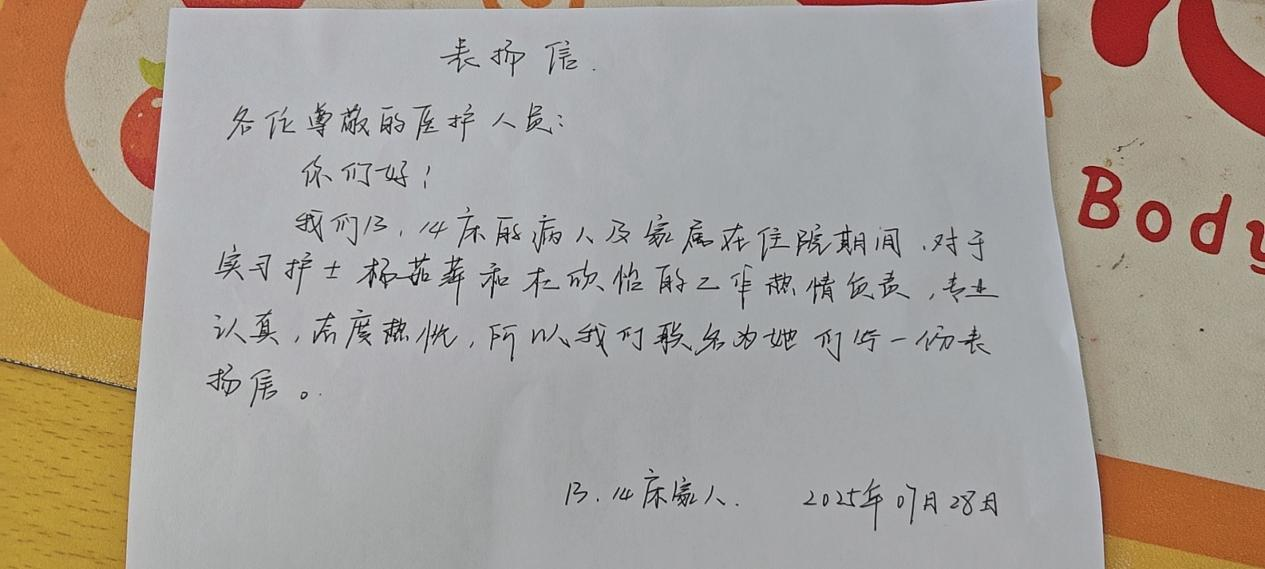 表扬信.
各位尊敬的医护人员:
你们好!
我们13.14床的病人及家属在住院期间,对于
实习护士杨茹苹和杜欣怡的工作热情负责,专业
认真,态度热忱,所以我们联名为她们写一份表
扬信。
13.14床家人. 2025年07月28日
Body